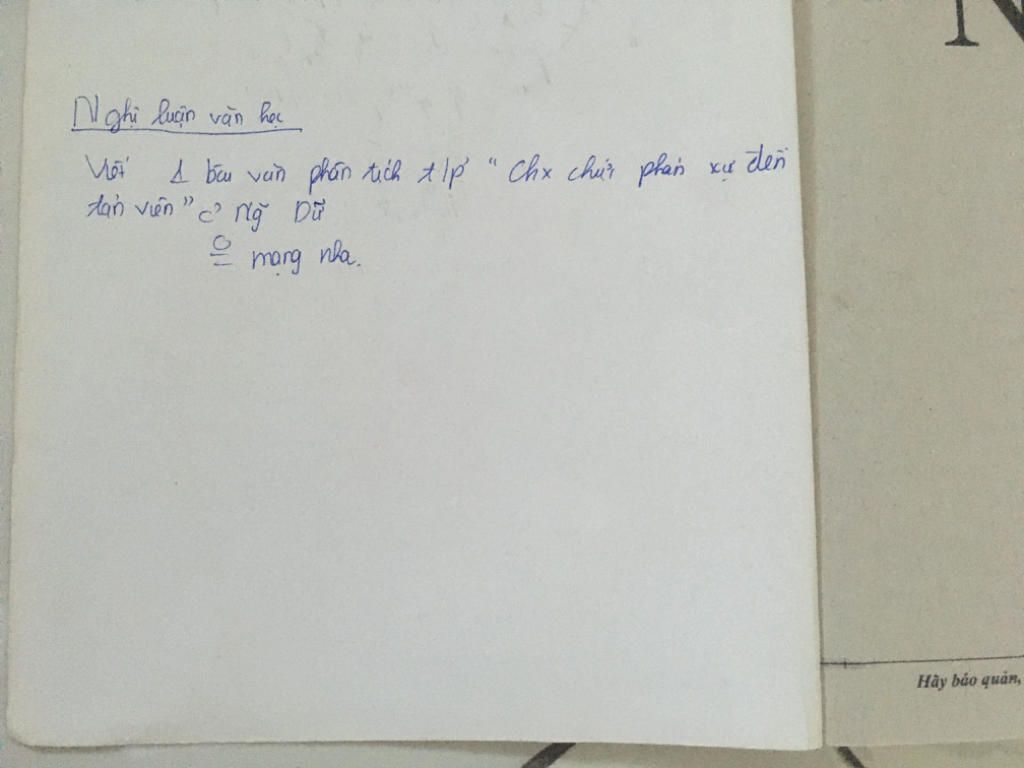 Nghị luận văn học
Viết 1 bài văn phân tích t/p' "Chx chức phán xự đền
tản viên" c' Ng~ Dữ
mạng nha.
N
Hãy bảo quản,